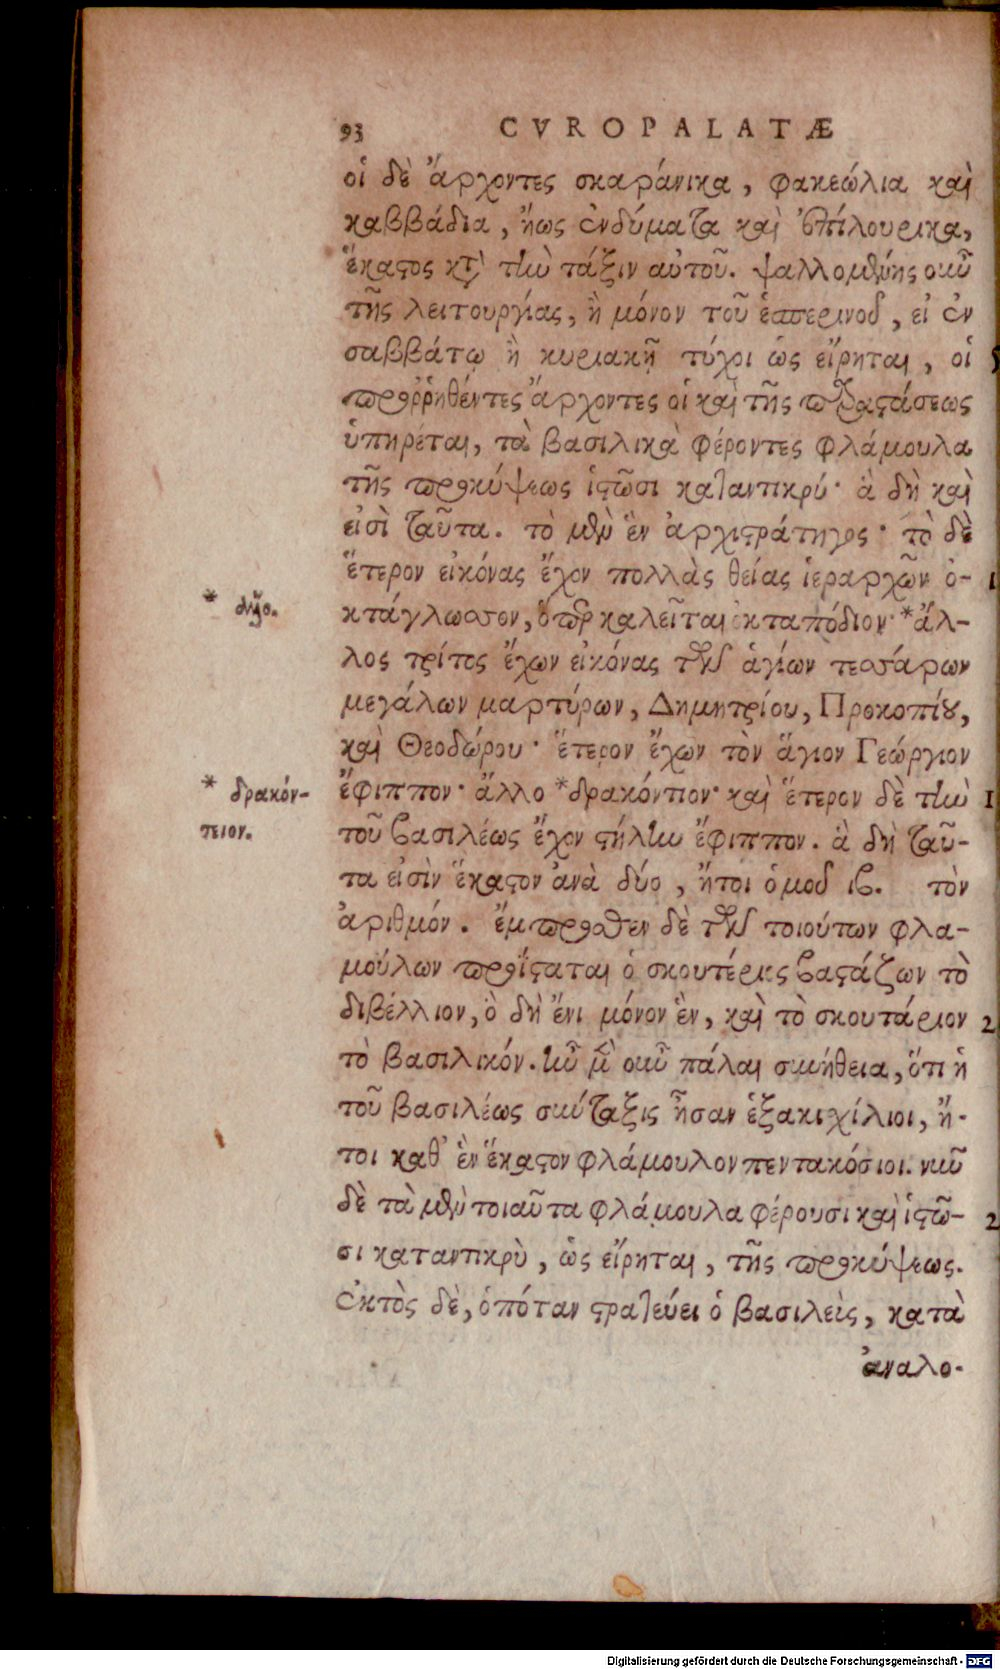 93 CVROPALATÆ
οἱ δὲ ἄρχοντες σκαράνικα, φακεώλια καὶ
καββάδια, ἤως ἐνδύματα καὶ ἐπιλουρικα,
ἕκαστος κτ τὴν τάξιν αὐτοῦ. ψαλλομένης οὖν
τῆς λειτουργίας, ἢ μόνον τοῦ ἑσπερινοῦ, εἰ ἐν
σαββάτῳ ἢ κυριακῇ τύχοι ὡς εἴρηται, οἱ 5
προῤῥηθέντες ἄρχοντες οἱ καὶ τῆς παραστάσεως
ὑπηρέται, τὰ βασιλικὰ φέροντες φλάμουλα
τῆς προκύψεως ἱστῶσι καταντικρύ· ἃ δὴ καὶ
εἰσὶ ταῦτα. τὸ μὲν ἓν ἀρχιστράτηγος· τὸ δὲ
ἕτερον εἰκόνας ἔχον πολλὰς θείας ἱεραρχῶν ὀ- 1
κτάγλωσσον, ὅπερ καλεῖται ὀκταπόδιον· *ἄλ-
λος τρίτος ἔχων εἰκόνας τῶν ἁγίων τεσσάρων
μεγάλων μαρτύρων, Δημητρίου, Προκοπίου,
καὶ Θεοδώρου· ἕτερον ἔχων τὸν ἅγιον Γεώργιον
* δρακόν-
τειον.
ἔφιππον· ἄλλο *δρακόντιον· καὶ ἕτερον δὲ τὴν 1
τοῦ βασιλέως ἔχον στήλην ἔφιππον. ἃ δὴ ταῦ-
τα εἰσὶν ἕκαστον ἀνὰ δύο, ἤτοι ὁμοῦ ιβ. τὸν
ἀριθμόν. ἔμπροσθεν δὲ τῶν τοιούτων φλα-
μούλων προΐσταται ὁ σκουτέρις βαστάζων τὸ
διβέλλιον, ὃ δὴ ἔνι μόνον ἓν, καὶ τὸ σκουτάριον 2
τὸ βασιλικόν. ἦν μὲν οὖν πάλαι συνήθεια, ὅτι ἡ
τοῦ βασιλέως σύνταξις ἦσαν ἑξακιχίλιοι, ἤ-
τοι καθ' ἓν ἕκαστον φλάμουλον πεντακόσιοι. νῦν
δὲ τὰ μὲν τοιαῦτα φλάμουλα φέρουσι καὶ ἱστῶ- 2
σι καταντικρὺ, ὡς εἴρηται, τῆς προκύψεως.
ἐκτὸς δὲ, ὁπόταν στρατεύει ὁ βασιλεὶς, κατὰ
ἀναλο-
Digitalisierung gefördert durch die Deutsche Forschungsgemeinschaft - DFG